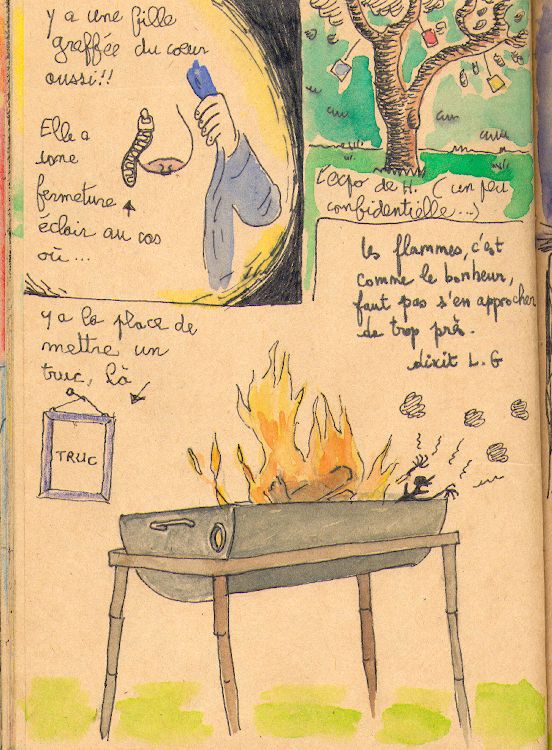 y a une fille
greffée du cœur
aussi!!
Elle a
une
fermeture
éclair au cas
où...
L'expo de H. (un peu
confidentielle...)
les flammes, c'est
comme le bonheur,
faut pas s'en approcher
de trop près.
dixit L.G
y a la place de
mettre un
truc, là
TRUC